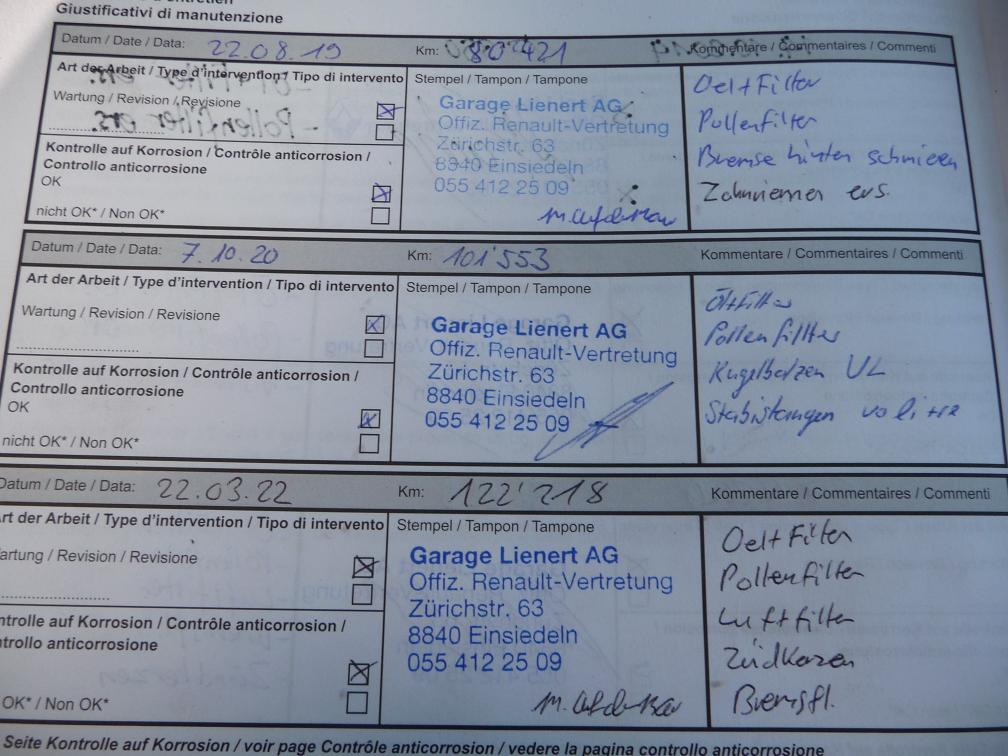 Giustificativi di manutenzione
Datum / Date / Data: 22.08.19 Km: 80'421 Kommentare / Commentaires / Commenti
Art der Arbeit / Type d'intervention / Tipo di intervento
Wartung / Revision / Revisione
Kontrolle auf Korrosion / Contrôle anticorrosion /
Controllo anticorrosione
OK
nicht OK* / Non OK*
Stempel / Tampon / Tampone
Garage Lienert AG
Offiz. Renault-Vertretung
Zürichstr. 63
8840 Einsiedeln
055 412 25 09
Oel+Filter
Pollenfilter
Bremse hinten schmieren
Zahnriemen ers.
Datum / Date / Data: 7.10.20 Km: 101'553 Kommentare / Commentaires / Commenti
Art der Arbeit / Type d'intervention / Tipo di intervento
Wartung / Revision / Revisione
Kontrolle auf Korrosion / Contrôle anticorrosion /
Controllo anticorrosione
OK
nicht OK* / Non OK*
Stempel / Tampon / Tampone
Garage Lienert AG
Offiz. Renault-Vertretung
Zürichstr. 63
8840 Einsiedeln
055 412 25 09
Öl+Filter
Pollenfillter
Kugelbolzen UL
Stabistangen vo li + re
Datum / Date / Data: 22.03.22 Km: 122'218 Kommentare / Commentaires / Commenti
Art der Arbeit / Type d'intervention / Tipo di intervento
artung / Revision / Revisione
ntrolle auf Korrosion / Contrôle anticorrosion /
ntrollo anticorrosione
OK* / Non OK*
Stempel / Tampon / Tampone
Garage Lienert AG
Offiz. Renault-Vertretung
Zürichstr. 63
8840 Einsiedeln
055 412 25 09
Oel+Filter
Pollenfilter
Luftfilter
Zündkerzen
Bremsfl.
Seite Kontrolle auf Korrosion / voir page Contrôle anticorrosion / vedere la pagina controllo anticorrosione